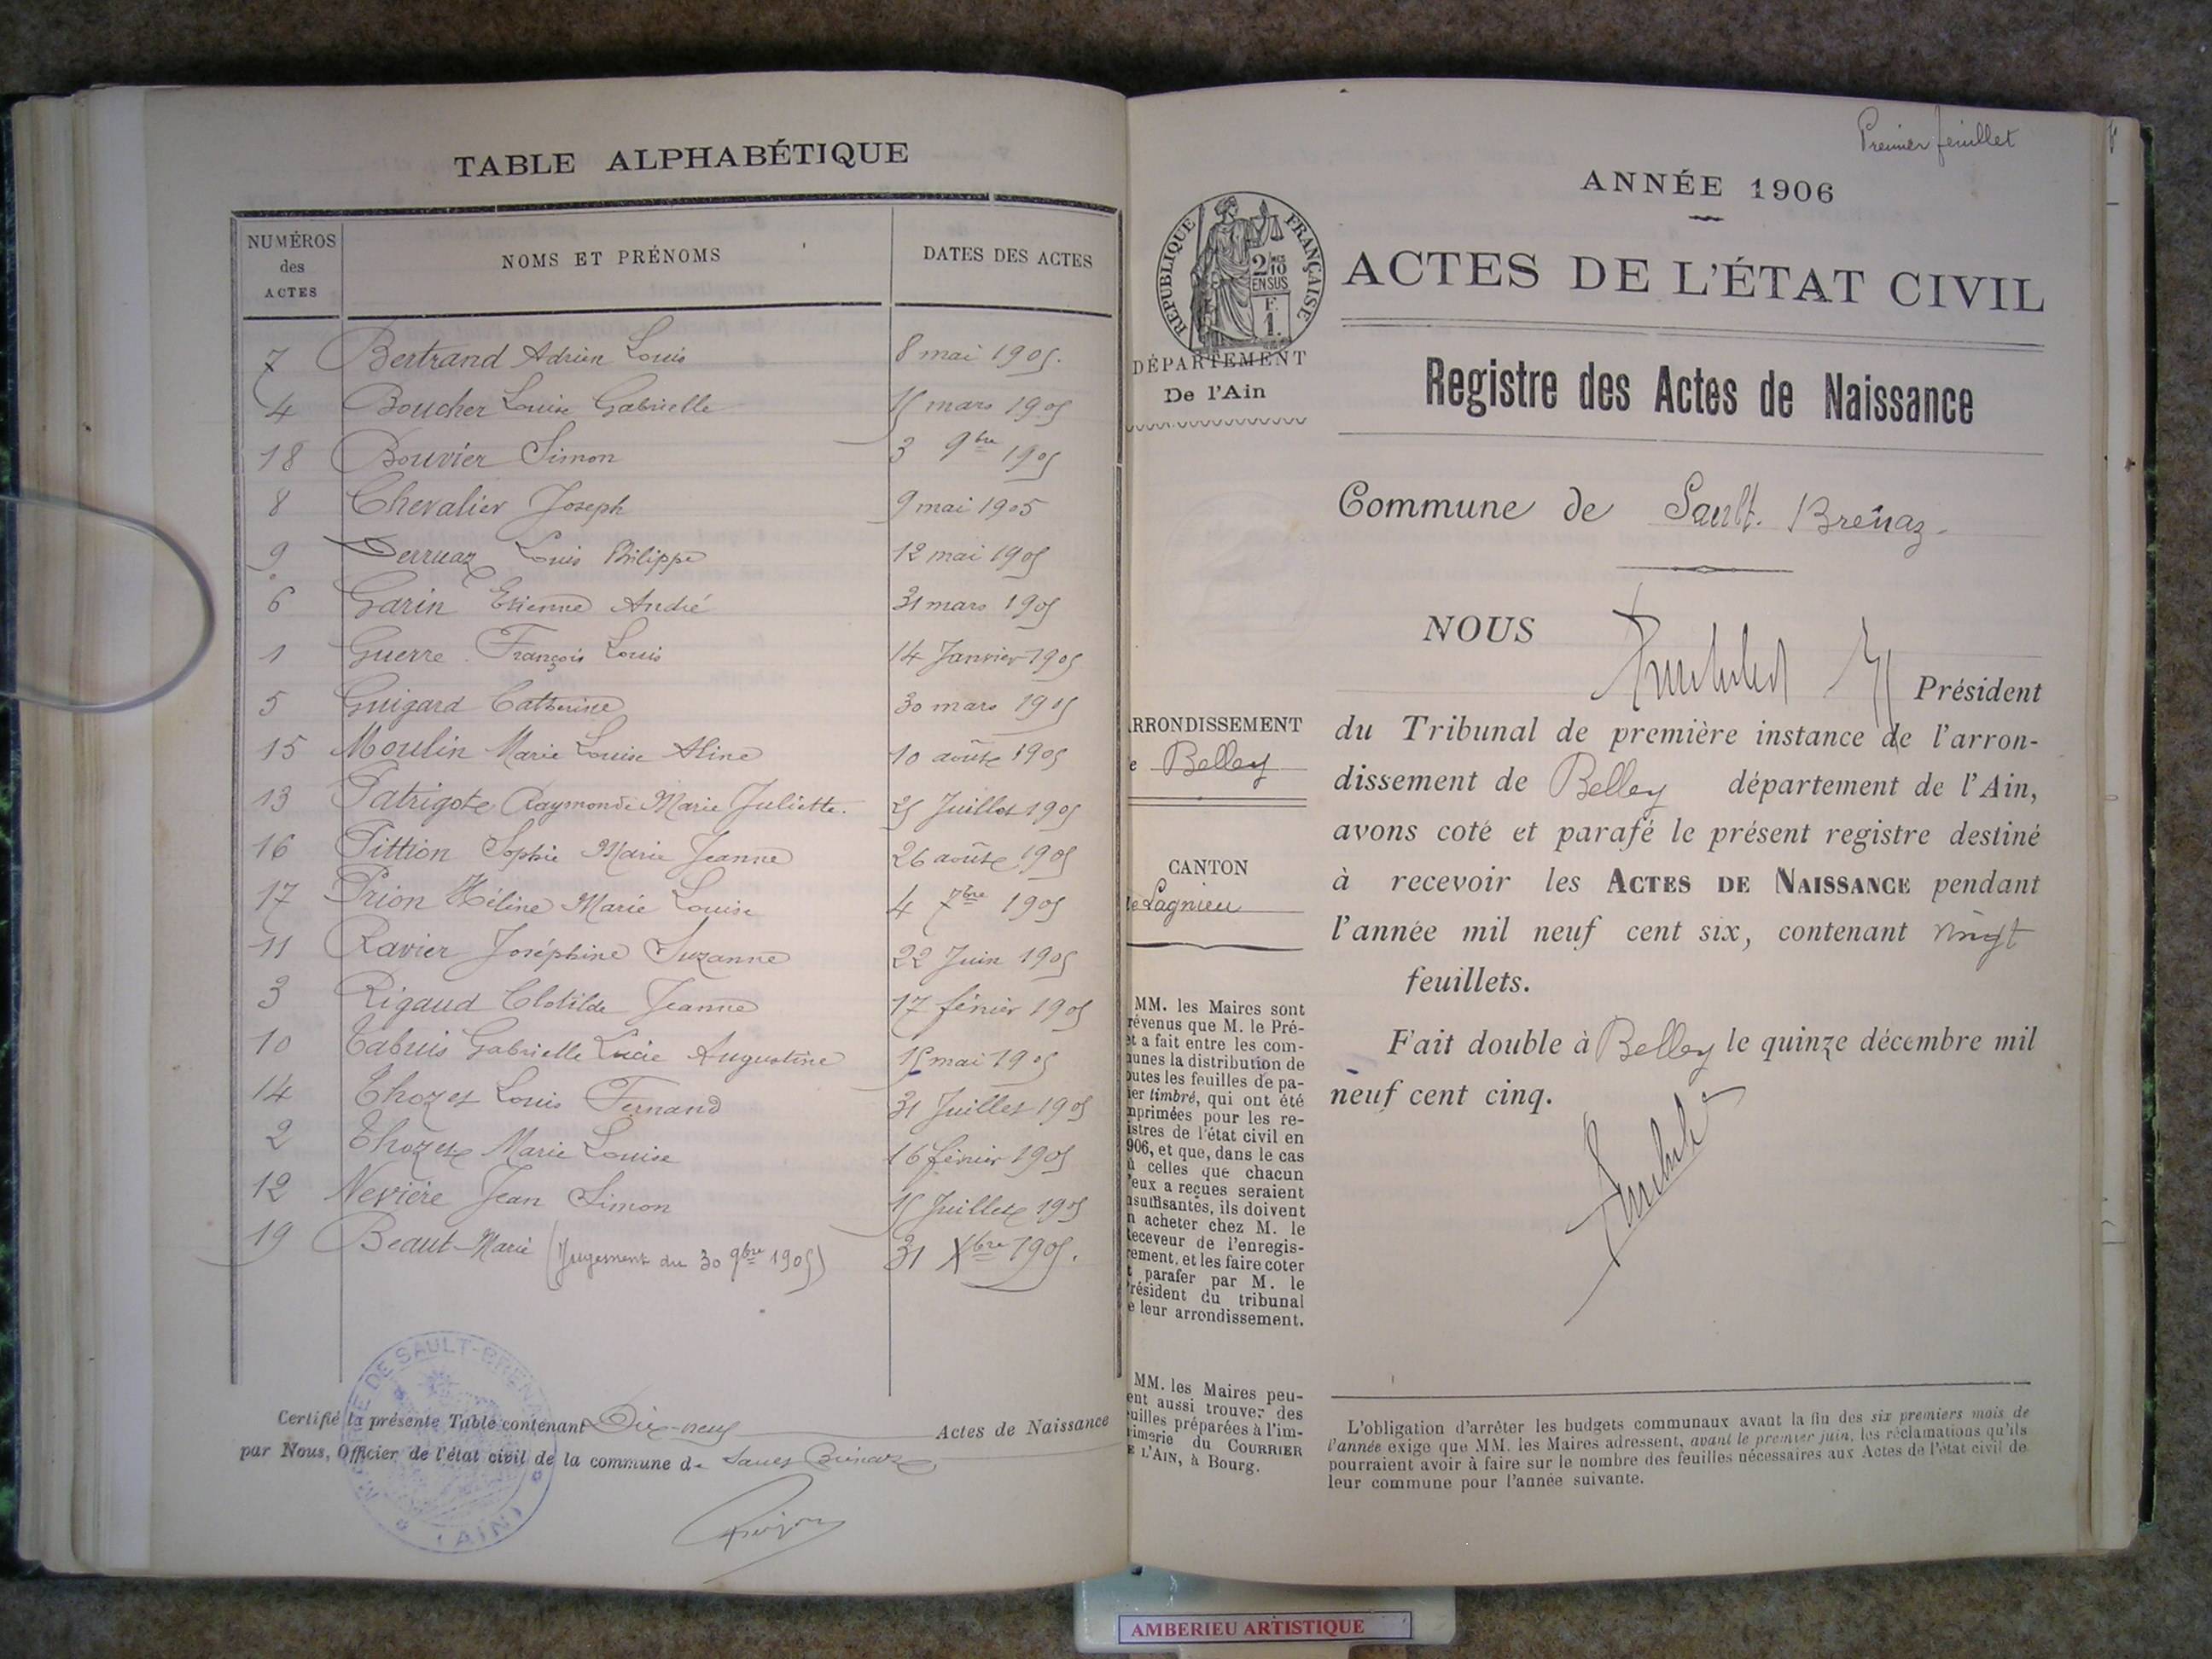 TABLE ALPHABÉTIQUE
NUMÉROS des ACTES NOMS ET PRÉNOMS DATES DES ACTES
7 Bertrand Adrien Louis 8 mai 1905.
4 Boucher Louise Gabrielle 15 mars 1905
18 Bouvier Simon 3 9bre 1905
8 Chevalier Joseph 9 mai 1905
9 Derruaz Louis Philippe 12 mai 1905
6 Garin Etienne André 31 mars 1905
1 Guerre François Louis 14 Janvier 1905
5 Guigard Catherine 30 mars 1905
15 Moulin Marie Louise Aline 10 août 1905
13 Patrigot Raymonde Marie Juliette. 25 Juillet 1905
16 Pittion Sophie Marie Jeanne 26 août 1905
17 Prion Héline Marie Louise 4 7bre 1905
11 Ravier Joséphine Suzanne 22 Juin 1905
3 Rigaud Clotilde Jeanne 17 février 1905
10 Tabuis Gabrielle Lucie Augustine 15 mai 1905
14 Thozet Louis Fernand 31 Juillet 1905
2 Thozet Marie Louise 16 février 1905
12 Nevière Jean Simon 15 Juillet 1905
19 Beaut Marie (Jugement du 30 9bre 1905) 31 Xbre 1905.
Certifié la présente Table contenant Dix-neuf Actes de Naissance
par Nous, Officier de l'état civil de la commune de Sault Brénaz
DE SAULT-BRENAZ
(AIN)
Premier feuillet
ANNÉE 1906
RÉPUBLIQUE FRANÇAISE
2/10 EN SUS
F. 1.
ACTES DE L'ÉTAT CIVIL
DÉPARTEMENT
De l'Ain
Registre des Actes de Naissance
Commune de Sault-Brénaz.
NOUS
Président
du Tribunal de première instance de l'arron-
dissement de Belley département de l'Ain,
avons coté et parafé le présent registre destiné
à recevoir les ACTES DE NAISSANCE pendant
l'année mil neuf cent six, contenant vingt
feuillets.
Fait double à Belley le quinze décembre mil
neuf cent cinq.
RRONDISSEMENT
e Belley
CANTON
de Lagnieu
MM. les Maires sont
révenus que M. le Pré-
et a fait entre les com-
unes la distribution de
outes les feuilles de pa-
ier timbré, qui ont été
mprimées pour les re-
istres de l'état civil en
906, et que, dans le cas
ù celles que chacun
'eux a reçues seraient
nsuffisantes, ils doivent
n acheter chez M. le
eceveur de l'enregis-
rement, et les faire coter
t parafer par M. le
résident du tribunal
e leur arrondissement.
MM. les Maires peu-
ent aussi trouver des
euilles préparées à l'im-
rimerie du COURRIER
E L'AIN, à Bourg.
L'obligation d'arrêter les budgets communaux avant la fin des six premiers mois de
l'année exige que MM. les Maires adressent, avant le premier juin, les réclamations qu'ils
pourraient avoir à faire sur le nombre des feuilles nécessaires aux Actes de l'état civil de
leur commune pour l'année suivante.
AMBERIEU ARTISTIQUE